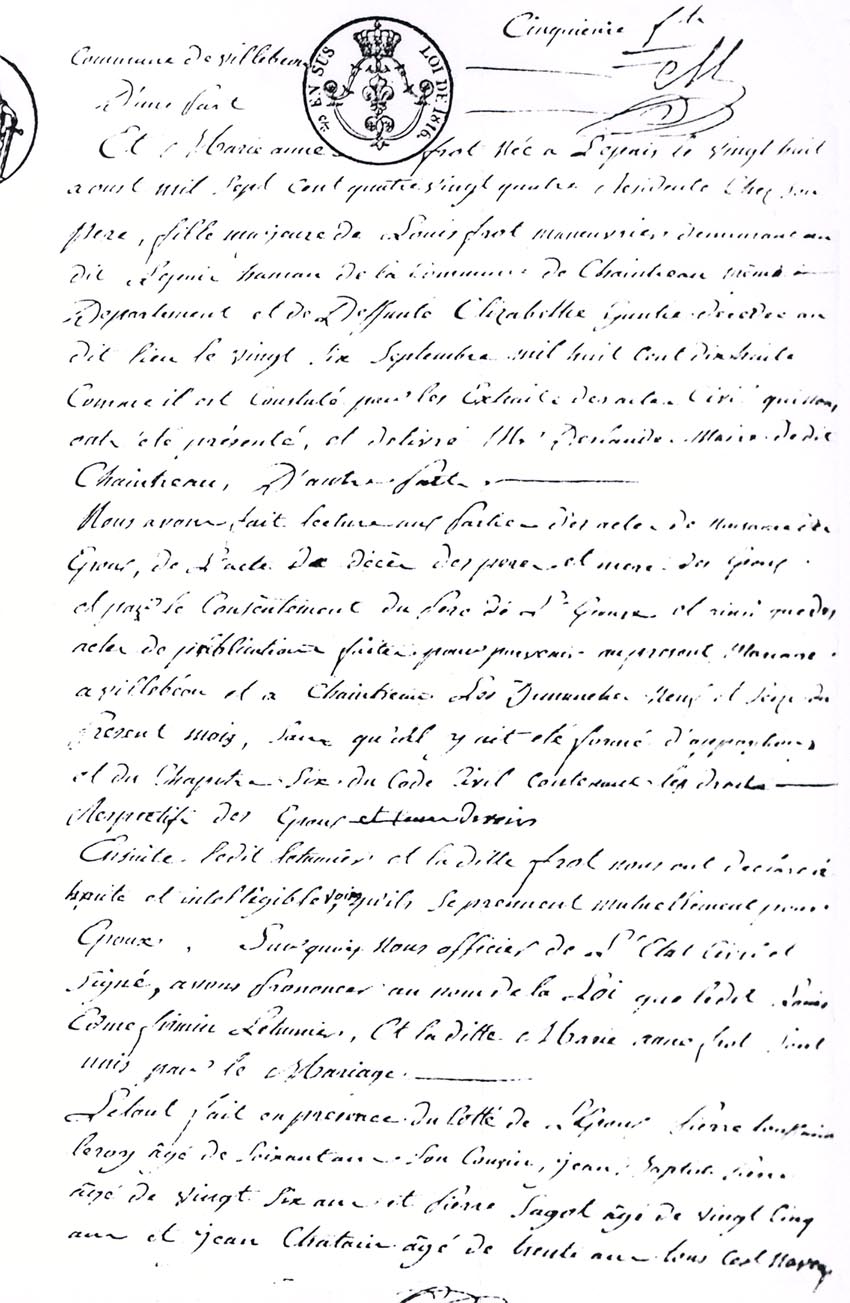 Cinquieme f.le
Commune de villebeon
EN SUS
LOI DE 1816.
D'une part
Et Marie anne frot Née a Lepais le vingt huit
aoust mil sept cent quatre vingt quatre Residente Chez son
pere, fille majeure de Louis frot manouvrier demeurant au
dit hamau de la Commune de Chaintreau même
Departement et de Deffunte Elizabethe décedée au
dit lieu le vingt six Septembre mil huit cent dix huite
Comme il est Constaté par les Extraits des actes Civil qui nous
ont été présenté, et délivré Mr. Maire dedit
Chaintreau, D'autre part
Nous avons fait lecture aux partie des actes de naissance des
Epoux, de L'acte de décès des peres et mere des Epoux
et par le Consentement du pere de L'Epouse et ainsi que des
actes de publications faites pour parvenir au present Mariage
a villebéon et a Chaintreau Les Dimanches Neuf et seize du
present mois, sans qu'il y ait été formé d'oppositions
et du Chapitre Six du Code Civil contenant les droits
Respectifs des Epoux et leurs devoirs
Ensuite ledit Letumier et la ditte frot nous ont declaré à
haute et intelligible voix, qu'ils se prennent mutuellement pour
Epoux. Sur quoi Nous officier de L'Etat Civil et
signé, avons prononcer au nom de la Loi que ledit Louis
Côme firmin Letumier, Et la ditte Marie anne frot sont
unis par le Mariage.
Letout fait en presence du Cotté de L'Epoux pierre toussain
leroy âgé de soixante ans Son Cousin, jean Baptiste
âgé de vingt Six ans et pierre Sagot âgé de vingt Cinq
ans et jean Chatain âgé de trente ans tous